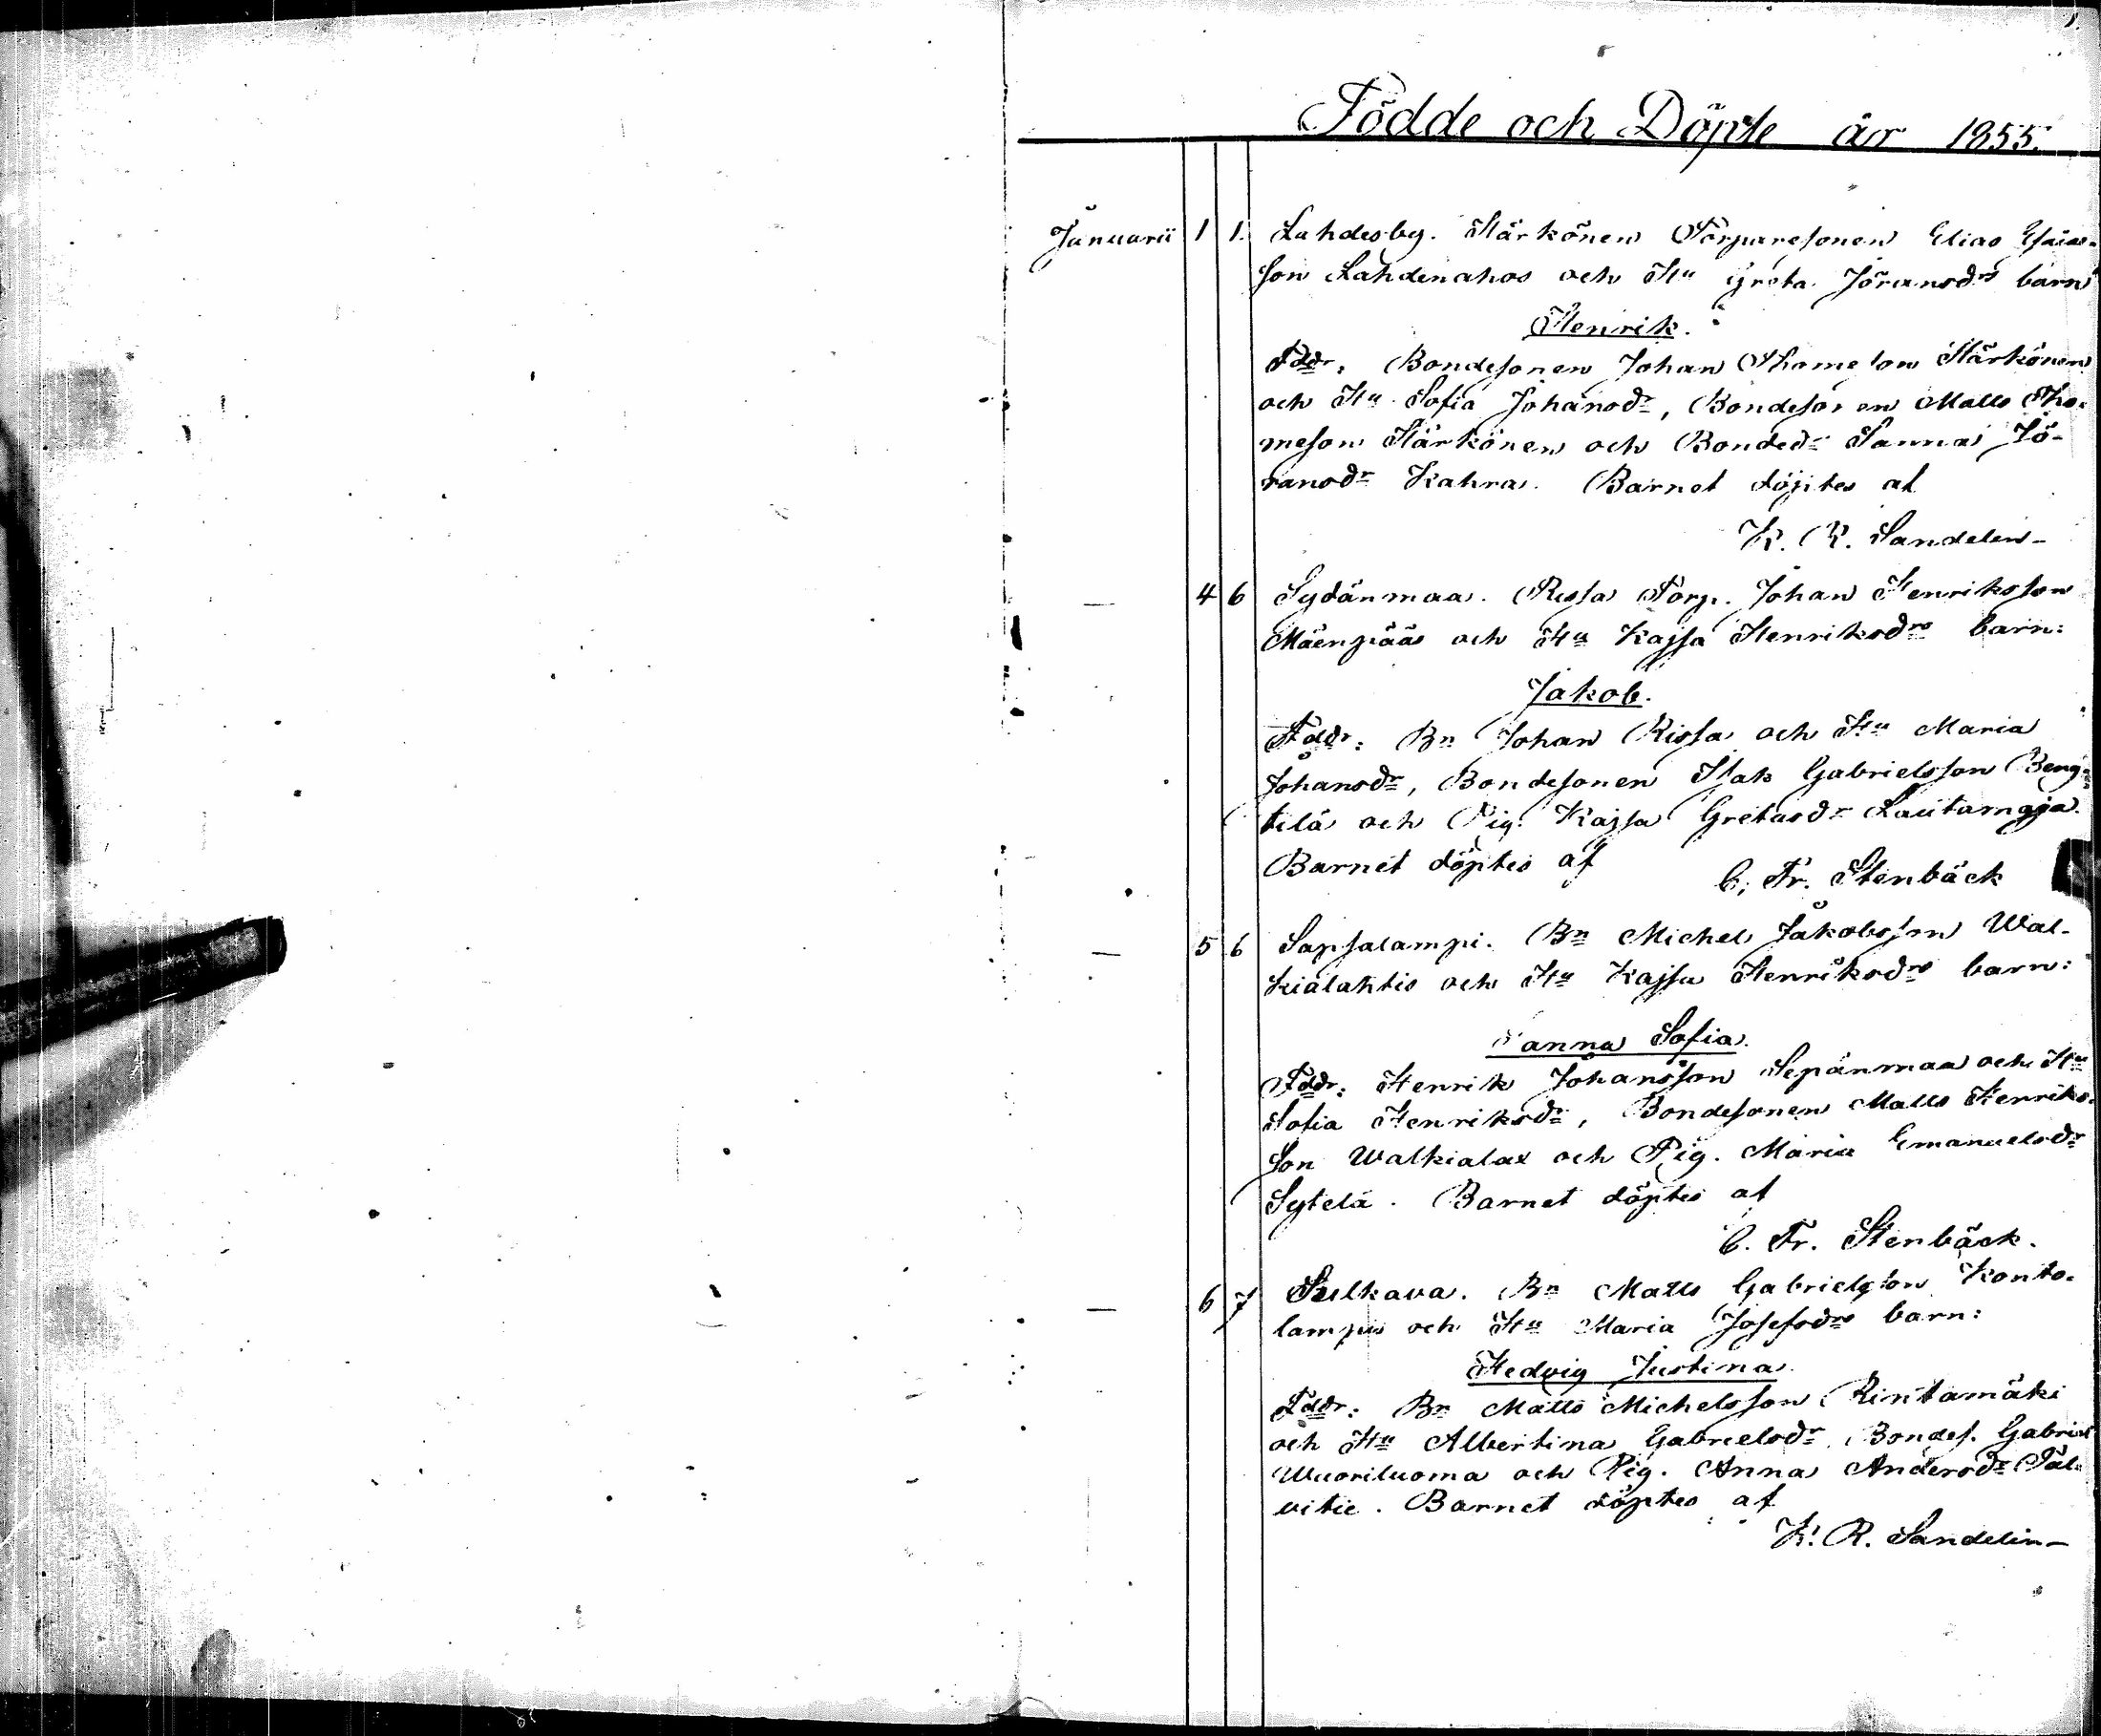 Födde och Döpte år 1855.
Januarii 1 1. Lahdesby. Härkönen Torparesonen Elias Esaias-
son Lahdenahos och Hu Greta Jöransdrs barn
Henrik.
Fddr: Bondesonen Johan Thomeson Härkönen
och Hu Sofia Johansdr, Bondesonen Matts Tho-
meson Härkönen och Bondedr Sanna Jö-
ransdr Kahra. Barnet döptes af
K. R. Sandelin
4 6 Sydänmaa. Rissa Torp. Johan Henriksson
Mäenpääs och Hu Kajsa Henriksdrs barn:
Jakob.
Fddr: Bn Johan Rissa och Hu Maria
Johansdr, Bondesonen Isak Gabrielsson Beng-
telä och Pig. Kajsa Gretasdr Lautamaja.
Barnet döptes af
C. Fr. Stenbäck
5 6 Sapsalampi. Bn Michel Jakobsson Wal-
kialahtis och Hu Kajsa Henriksdrs barn:
Sanna Sofia.
Fddr: Henrik Johansson Sepänmaa och Hu
Sofia Henriksdr, Bondesonen Matts Henriks-
son Walkialax och Pig. Maria Emanuelsdr
Sytelä. Barnet döptes af
C. Fr. Stenbäck.
6 7 Sulkava. Bn Matts Gabrielsson Konto-
lampis och Hu Maria Josefsdrs barn:
Hedvig Justina.
Fddr: Bn Matts Michelsson Rintamäki
och Hu Albertina Gabrielsdr, Bondes. Gabriel
Wuoriluoma och Pig. Anna Andersdr Tal-
vitie. Barnet döptes af
K. R. Sandelin